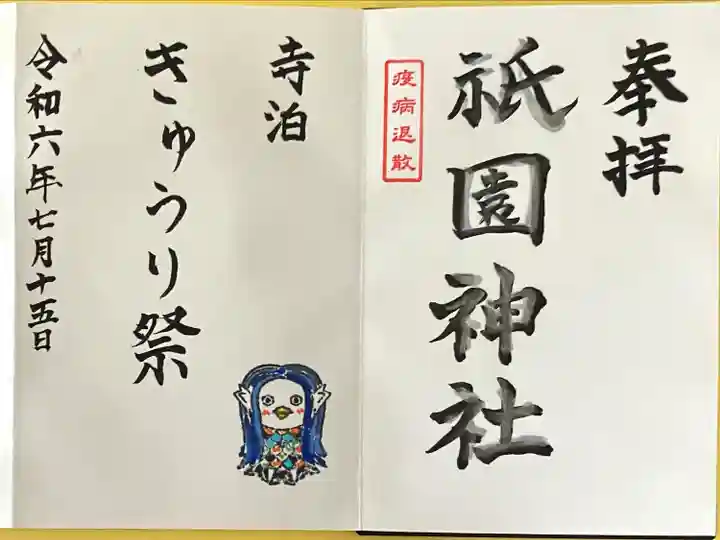 奉拝
祇園神社
疫病退散
寺泊
きゅうり祭
令和六年七月十五日